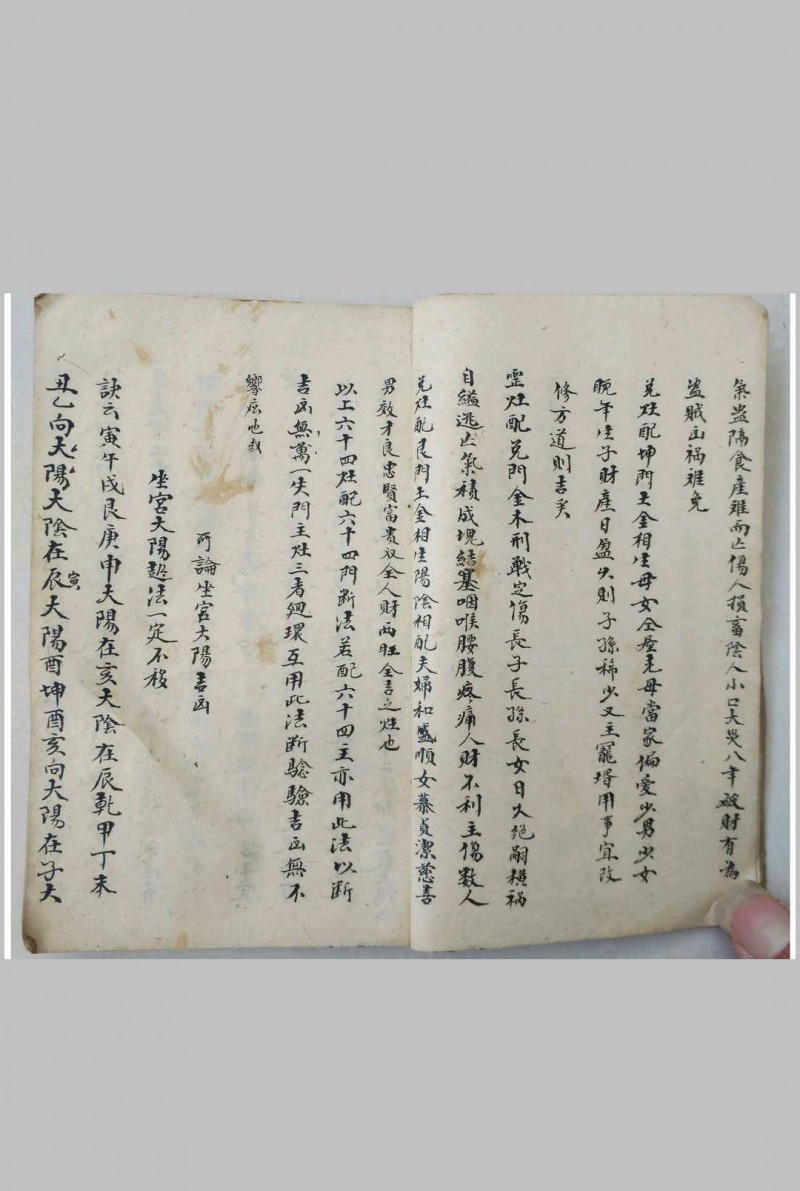 氣蠱隔食產难而亡傷人損畜陰人小口大哭八年破財有為
盗賊凶祸难免
兑灶配坤門土金相生母女仝
老母當家偏愛少男少女
晚年生子財産日盈久则子孫稀少又主寵壻用事宜改
修方道則吉矣
灶配兑門金木刑戰定傷長子長孫長女日久绝嗣横祸
自縊逃亡氣積成塊結塞咽喉腰腹疼痛人财不利主傷数人
兑灶配艮門土金相生陽陰相配夫婦和盛順女慕貞潔慈善
男效才良忠賢富貴双全人財両旺全吉之灶也
以上六十四灶配六十四門断法若配六十四主亦用此法以断
吉凶無萬一失門主灶三者廻環互用此法断騐驗吉凶無不
響應也哉
所論坐宫太陽吉凶
坐宫天陽起法一定不移
訣云寅午戌艮庚申天陽在亥大陰在辰乾甲丁未
丑乙向天陽大陰在辰寅大陽酉坤酉亥向大陽在子大